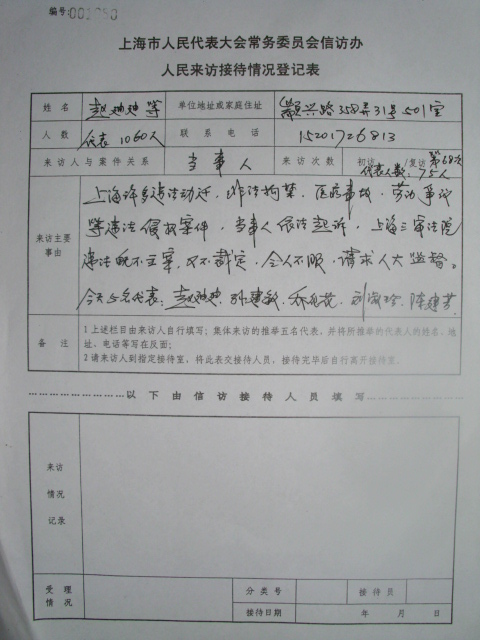 编号:001350
上海市人民代表大会常务委员会信访办
人民来访接待情况登记表
姓名 赵迪迪等 单位地址或家庭住址 兴路358弄31号501室
人数 代表1060人 联系电话 15201726813
来访人与案件关系 当事人 来访次数 初访/复访 第68次
代表人数:75人
来访主要事由
上海许多违法动迁、非法拘禁、医疗事故、劳动争议
等违法侵权案件,当事人依法起诉,上海三审法院
违法既不立案,又不裁定,令人不服,请求人大监督。
今天5名代表:赵迪迪、孙建敏、乔花、刘淑珍、陈建芳
备注
1 上述栏目由来访人自行填写;集体来访的推举五名代表,并将所推举的代表人的姓名、地
址、电话等写在反面;
2 请来访人到指定接待室,将此表交接待人员,接待完毕后自行离开接待室.
以下由信访接待人员填写
来访
情况
记录
受理情况 分类号 接待员
接待日期 年 月 日